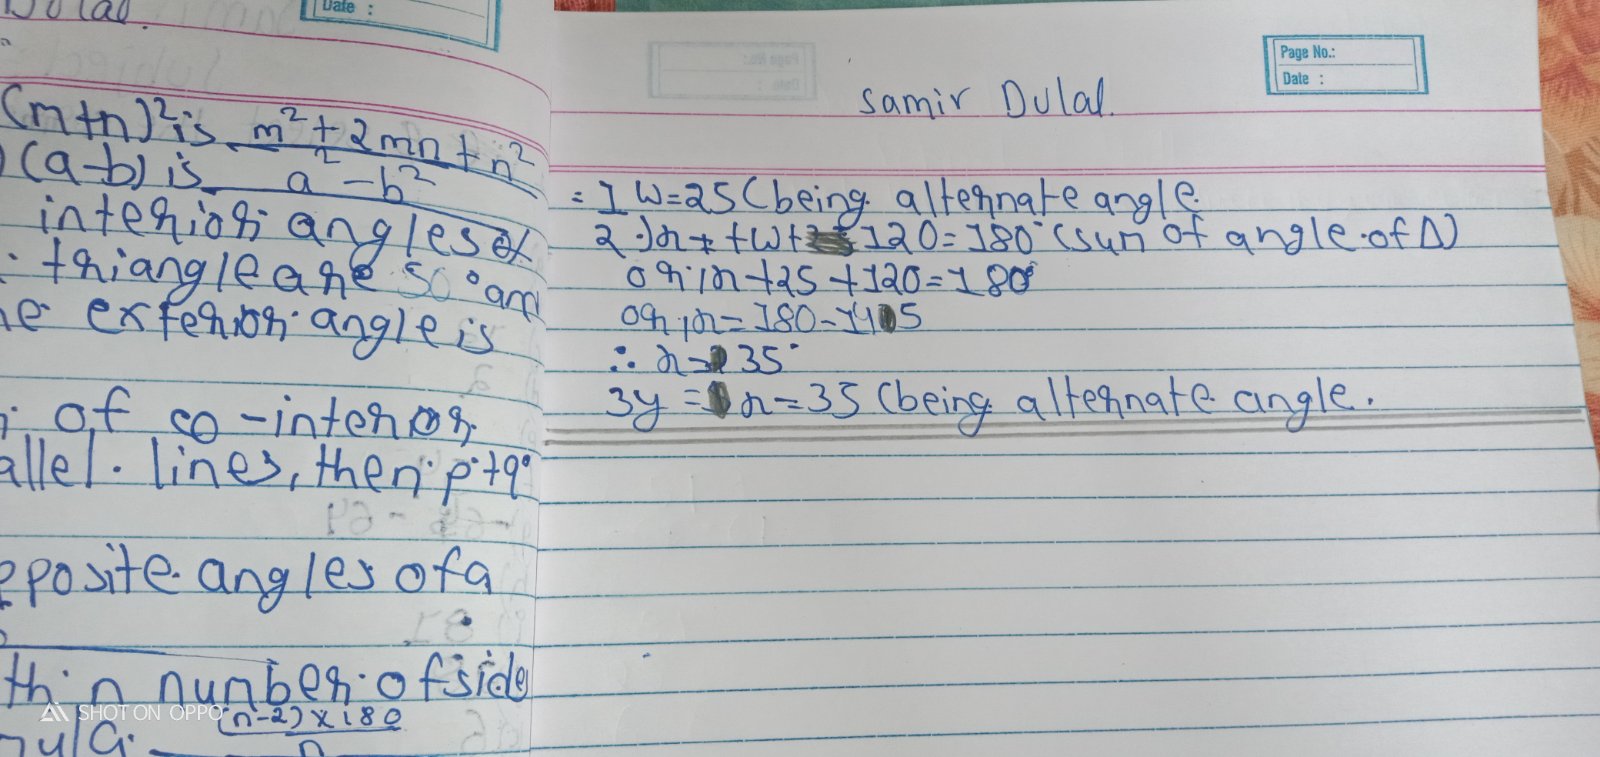 Dulal.
Date :
(m+n)² is m² + 2mn + n²
(a-b) is a² - b²
interior angles of
triangle are 50° and
exterior angle is
of co-interior
allel. lines, then p+q
pposite angles of a
th n number of side
(n-2) x 180
n
SHOT ON OPPO
Page No.:
Date :
Samir Dulal.
= 1 w=25 (being alternate angle.
2.) x + w + 120 = 180° (sum of angle of Δ)
or, x + 25 + 120 = 180°
or, x = 180 - 145
∴ x = 35°
3 y = x = 35 (being alternate angle.